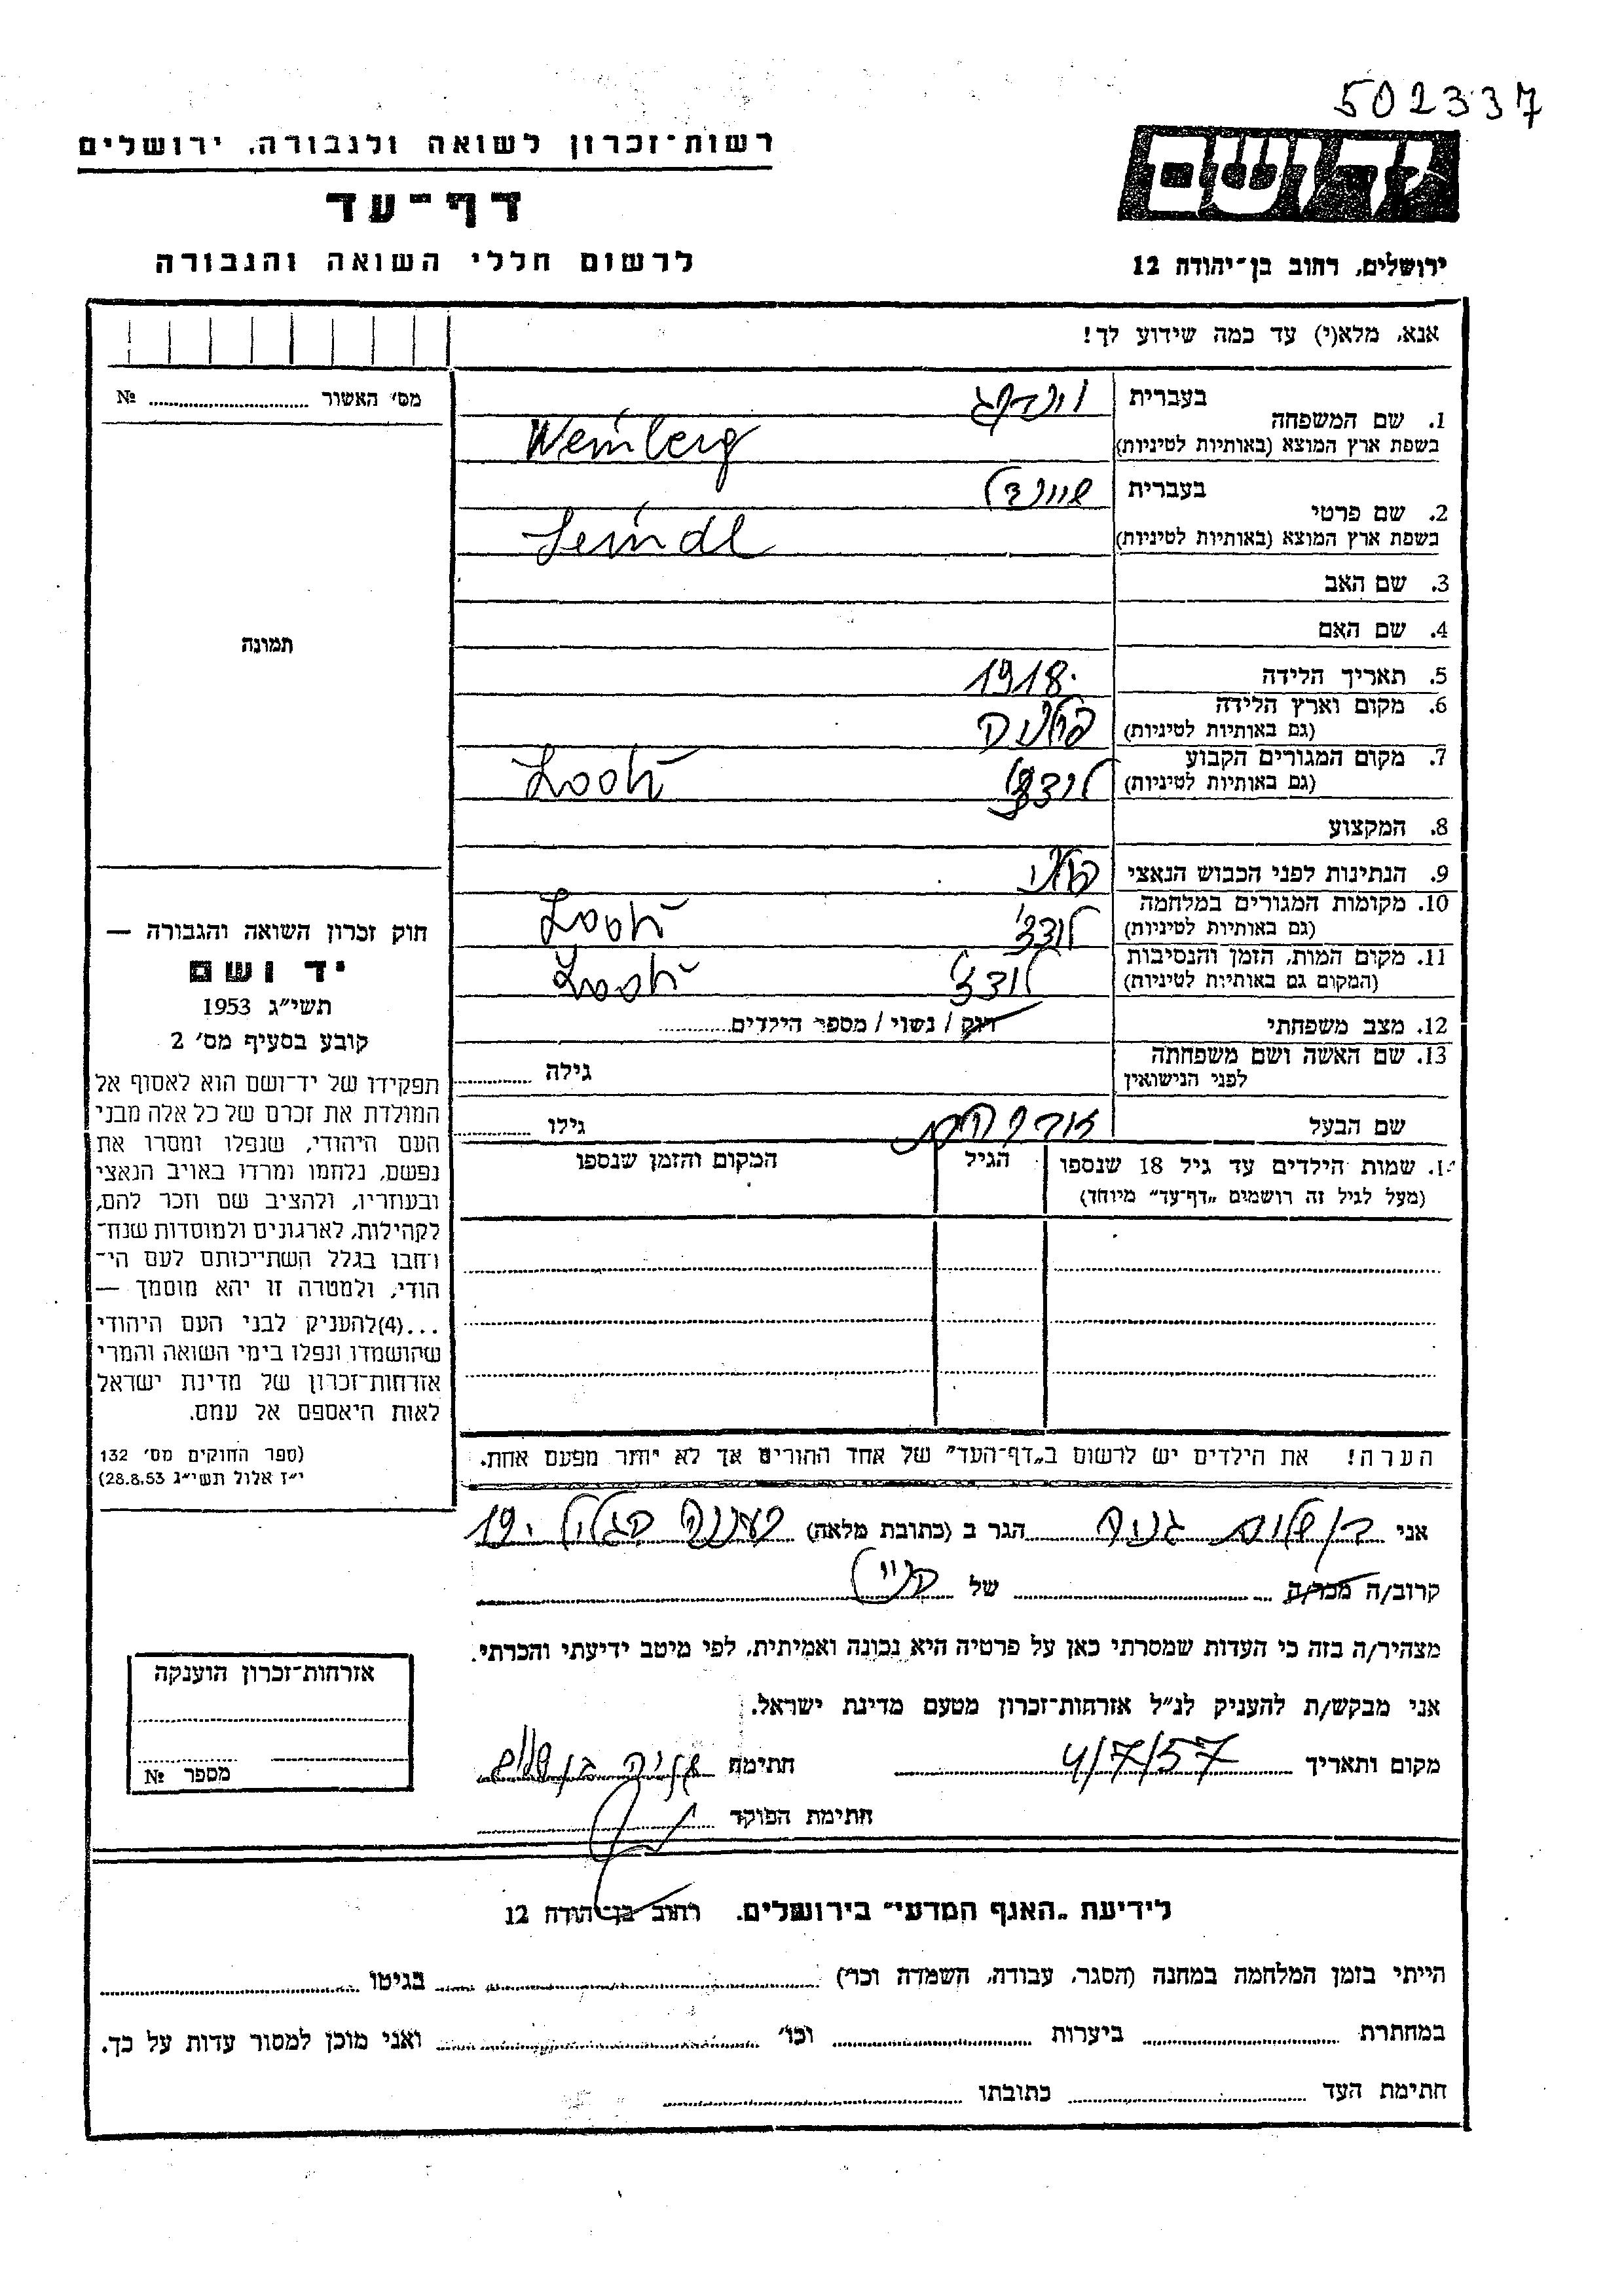 502337
רשות־זכרון לשואה ולגבורה, ירושלים
דף־עד
לרשום חללי השואה והגבורה
ידושם
ירושלים, רחוב בן־יהודה 12
אנא, מלא(י) עד כמה שידוע לך!
מס׳ האשור № ........
1. שם המשפחה בעברית
בשפת ארץ המוצא (באותיות לטיניות) Weinberg
2. שם פרטי בעברית
בשפת ארץ המוצא (באותיות לטיניות) Seindl
3. שם האב
4. שם האם
תמונה
5. תאריך הלידה 1918
6. מקום וארץ הלידה
(גם באותיות לטיניות)
7. מקום המגורים הקבוע לודז׳ Lodź
(גם באותיות לטיניות)
8. המקצוע
9. הנתינות לפני הכבוש הנאצי פולני
10. מקומות המגורים במלחמה לודז׳ Lodź
(גם באותיות לטיניות)
11. מקום המות, הזמן והנסיבות לודז׳ Lodź
(המקום גם באותיות לטיניות)
12. מצב משפחתי רווק / נשוי / מספר הילדים........
13. שם האשה ושם משפחתה גילה ........
לפני הנישואין
שם הבעל גילו ........
1. שמות הילדים עד גיל 18 שנספו הגיל המקום והזמן שנספו
(מעל לגיל זה רושמים „דף־עד״ מיוחד)
חוק זכרון השואה והגבורה —
יד ושם
תשי״ג 1953
קובע בסעיף מס׳ 2
תפקידו של יד־ושם הוא לאסוף אל
המולדת את זכרם של כל אלה מבני
העם היהודי, שנפלו ומסרו את
נפשם, נלחמו ומרדו באויב הנאצי
ובעוזריו, ולהציב שם וזכר להם,
לקהילות, לארגונים ולמוסדות שנח־
רחבו בגלל השתייכותם לעם הי־
הודי, ולמטרה זו יהא מוסמך —
...(4)להעניק לבני העם היהודי
שהושמדו ונפלו בימי השואה והמרי
אזרחות־זכרון של מדינת ישראל
לאות היאספם אל עמם.
(ספר החוקים מס׳ 132
י״ז אלול תשי״ג 28.8.53)
הערה! את הילדים יש לרשום ב„דף־העד״ של אחד ההורים אך לא יותר מפעם אחת.
אני בן שלום הגר ב (כתובת מלאה) 19
קרוב/ה מכר/ה ........ של ........
מצהיר/ה בזה כי העדות שמסרתי כאן על פרטיה היא נכונה ואמיתית, לפי מיטב ידיעתי והכרתי.
אני מבקש/ת להעניק לנ״ל אזרחות־זכרון מטעם מדינת ישראל.
מקום ותאריך 4/7/57 חתימה בן שלום
חתימת הפוקד
אזרחות־זכרון הוענקה
מספר №
לידיעת „האגף המדעי״ בירושלים. רחוב בן־יהודה 12
הייתי בזמן המלחמה במחנה (הסגר, עבודה, השמדה וכר׳) ........ בגיטו ........
במחתרת ........ ביערות ........ וכו׳ ........ ואני מוכן למסור עדות על כך.
חתימת העד ........ כתובתו ........